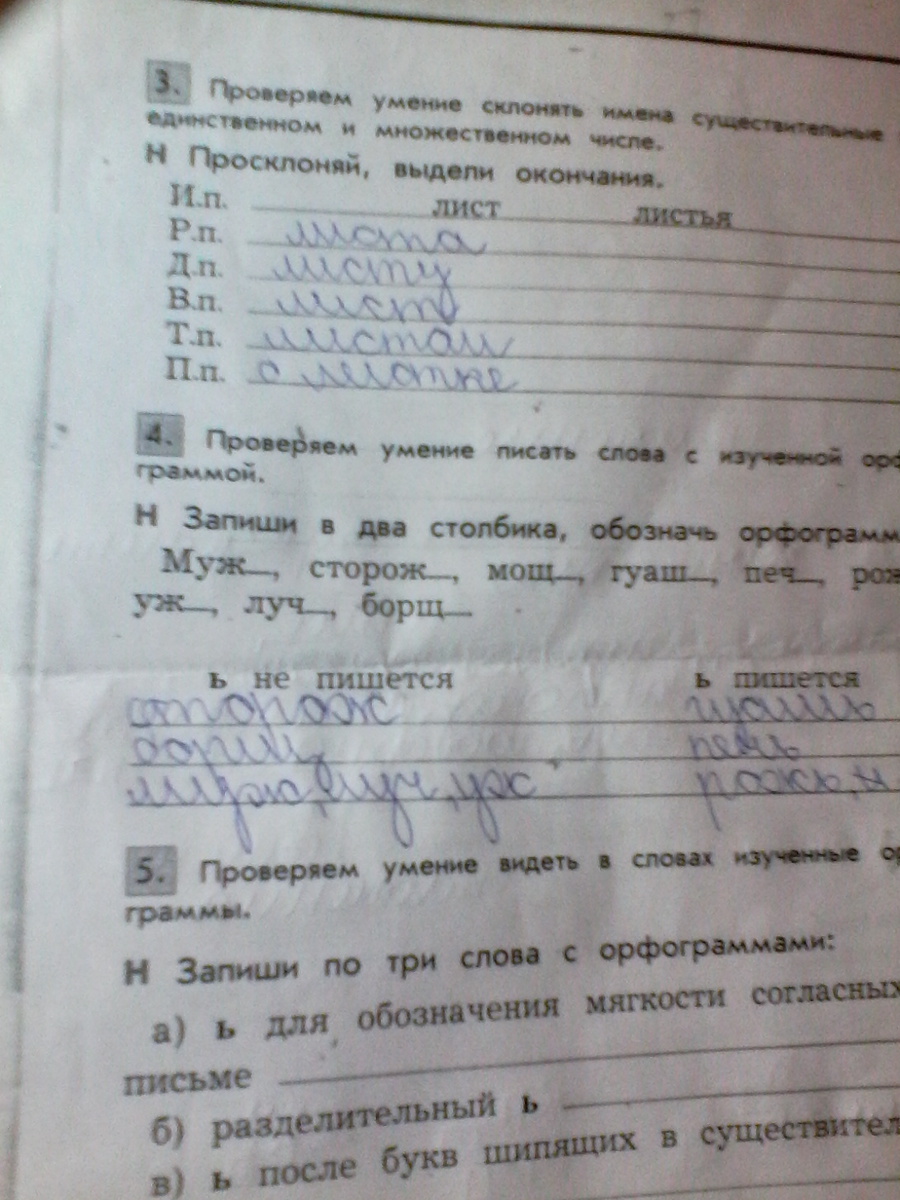 3. Проверяем умение склонять имена существительные
единственном и множественном числе.
Н Просклоняй, выдели окончания.
И.п. лист листья
Р.п. листа
Д.п. листу
В.п. лист
Т.п. листом
П.п. о
4. Проверяем умение писать слова с изученной орф
граммой.
Н Запиши в два столбика, обозначь орфограмм
Муж__, сторож__, мощ__, гуаш__, печ__, рож
уж__, луч__, борщ__
ь не пишется ь пишется
сторож гуашь
борщ печь
муж, луч, уж рожь,
5. Проверяем умение видеть в словах изученные ор
граммы.
Н Запиши по три слова с орфограммами:
а) ь для обозначения мягкости согласных
письме
б) разделительный ь
в) ь после букв шипящих в существител